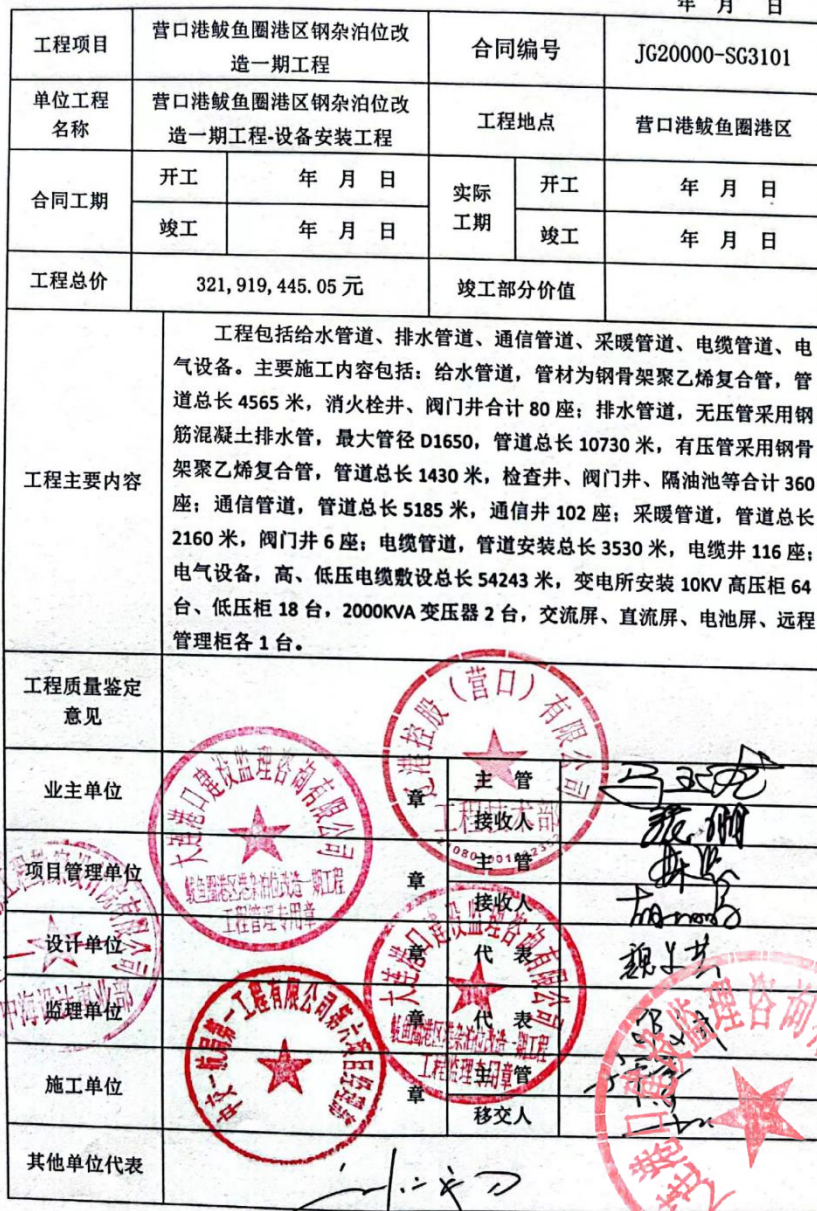 年 月 日
工程项目 营口港鲅鱼圈港区钢杂泊位改 合同编号 JG20000-SG3101
造一期工程
单位工程 营口港鲅鱼圈港区钢杂泊位改 工程地点 营口港鲅鱼圈港区
名称 造一期工程-设备安装工程
合同工期 开工 年 月 日 实际 开工 年 月 日
竣工 年 月 日 工期 竣工 年 月 日
工程总价 321,919,445.05 元 竣工部分价值
工程主要内容
工程包括给水管道、排水管道、通信管道、采暖管道、电缆管道、电
气设备。主要施工内容包括：给水管道，管材为钢骨架聚乙烯复合管，管
道总长 4565 米，消火栓井、阀门井合计 80 座；排水管道，无压管采用钢
筋混凝土排水管，最大管径 D1650，管道总长 10730 米，有压管采用钢骨
架聚乙烯复合管，管道总长 1430 米，检查井、阀门井、隔油池等合计 360
座；通信管道，管道总长 5185 米，通信井 102 座；采暖管道，管道总长
2160 米，阀门井 6 座；电缆管道，管道安装总长 3530 米，电缆井 116 座；
电气设备，高、低压电缆敷设总长 54243 米，变电所安装 10KV 高压柜 64
台、低压柜 18 台，2000KVA 变压器 2 台，交流屏、直流屏、电池屏、远程
管理柜各 1 台。
工程质量鉴定
意见
业主单位 章 主 管
接收人
项目管理单位 章 主 管
接收人
设计单位 章 代 表
监理单位 章 代 表
施工单位 章 主 管
移交人
其他单位代表
港控股（营口）有限公司
工程技术部
大连港口建设监理咨询有限公司
鲅鱼圈港区钢杂泊位改造一期工程
工程管理专用章
大连港口建设监理咨询有限公司
鲅鱼圈港区钢杂泊位改造一期工程
工程监理专用章
中交一航局第一工程有限公司第六项目经理部
有限公司
大连港口建设监理咨询